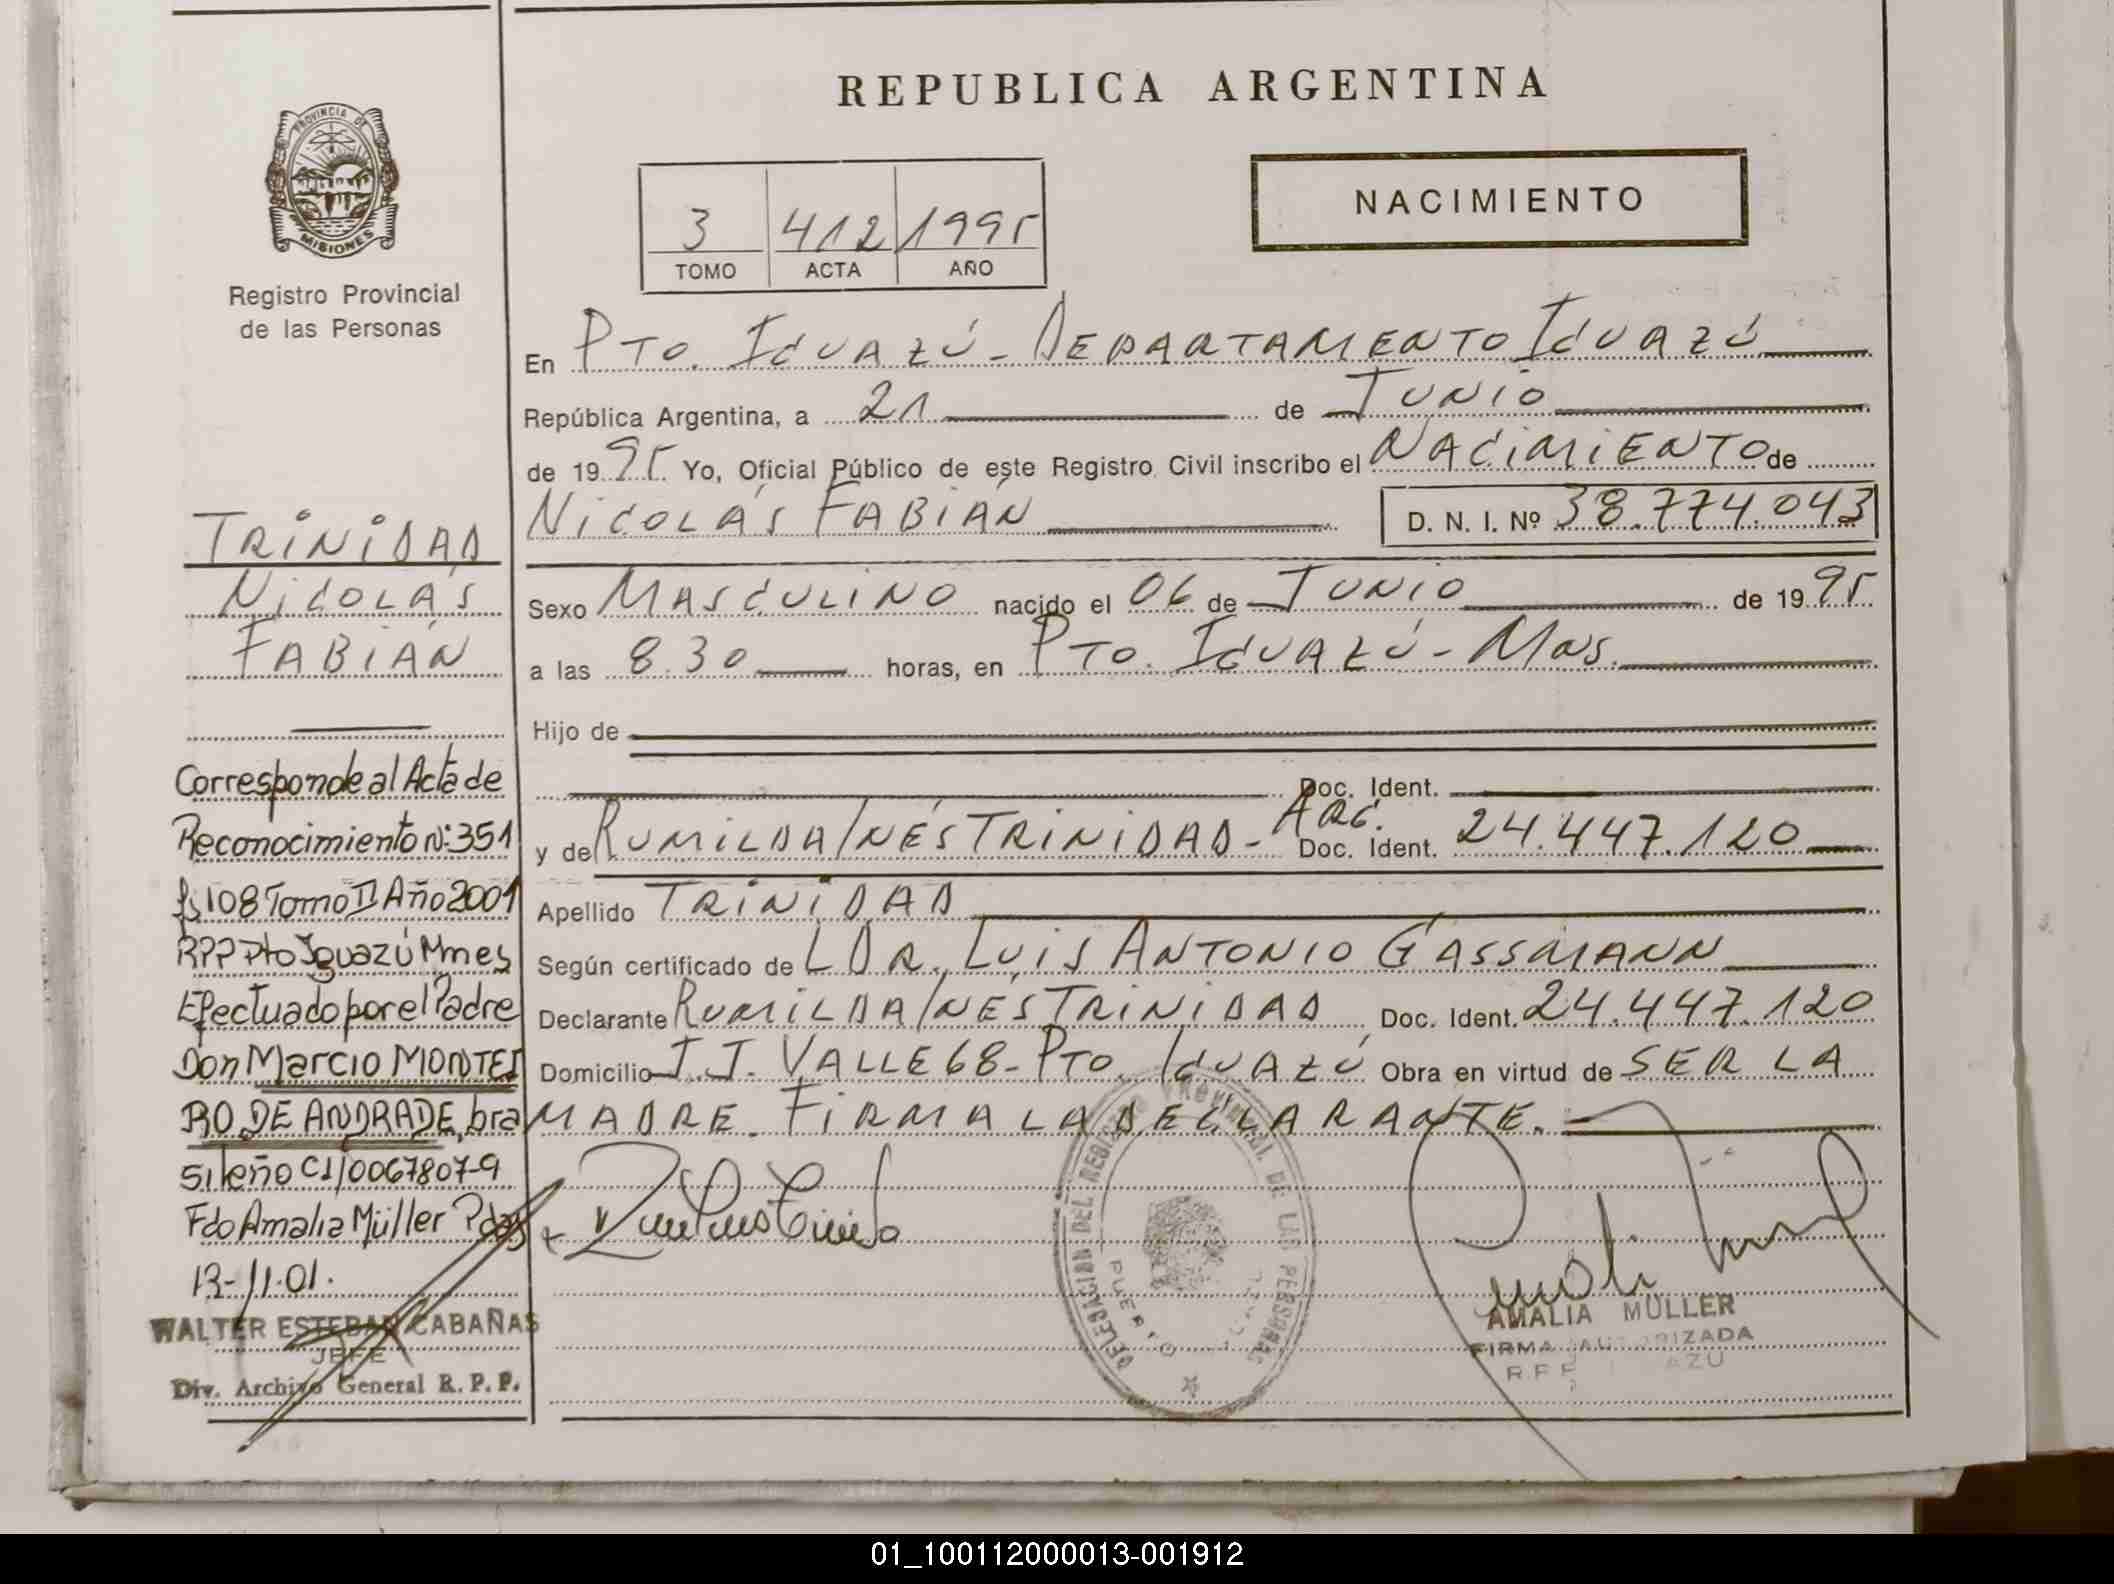 REPUBLICA ARGENTINA
PROVINCIA DE
MISIONES
Registro Provincial
de las Personas
NACIMIENTO
3 412 1995
TOMO ACTA AÑO
En PTO. IGUAZÚ - DEPARTAMENTO IGUAZÚ
República Argentina, a 21 de JUNIO
de 1995 Yo, Oficial Público de este Registro Civil inscribo el NACIMIENTO de
NICOLÁS FABIÁN D. N. I. Nº 38.774.043
Sexo MASCULINO nacido el 06 de JUNIO de 1995
a las 8.30 horas, en PTO. IGUAZÚ - Mns.
Hijo de
Doc. Ident.
y de RUMILDA INÉS TRINIDAD - ARG. Doc. Ident. 24.447.120
Apellido TRINIDAD
Según certificado de L DR. LUIS ANTONIO GASSMANN
Declarante RUMILDA INÉS TRINIDAD Doc. Ident. 24.447.120
Domicilio J.J. VALLE 68 - PTO. IGUAZÚ Obra en virtud de SER LA
MADRE. FIRMA LA DECLARANTE. -
TRINIDAD
NICOLÁS
FABIÁN
Corresponde al Acta de
Reconocimiento Nº: 351
fs 108 Tomo II Año 2001
RPP Pto Iguazú Mnes
Efectuado por el Padre
Don Marcio MONTEI
RO DE ANDRADE, bra
sileño CI/0067807-9
Fdo Amalia Müller Pdas
13-11-01.
WALTER ESTEBAN CABAÑAS
JEFE
Div. Archivo General R. P. P.
DELEGACION DEL REGISTRO PROVINCIAL DE LAS PERSONAS
PUERTO
AMALIA MULLER
FIRMA AUTORIZADA
01_100112000013-001912